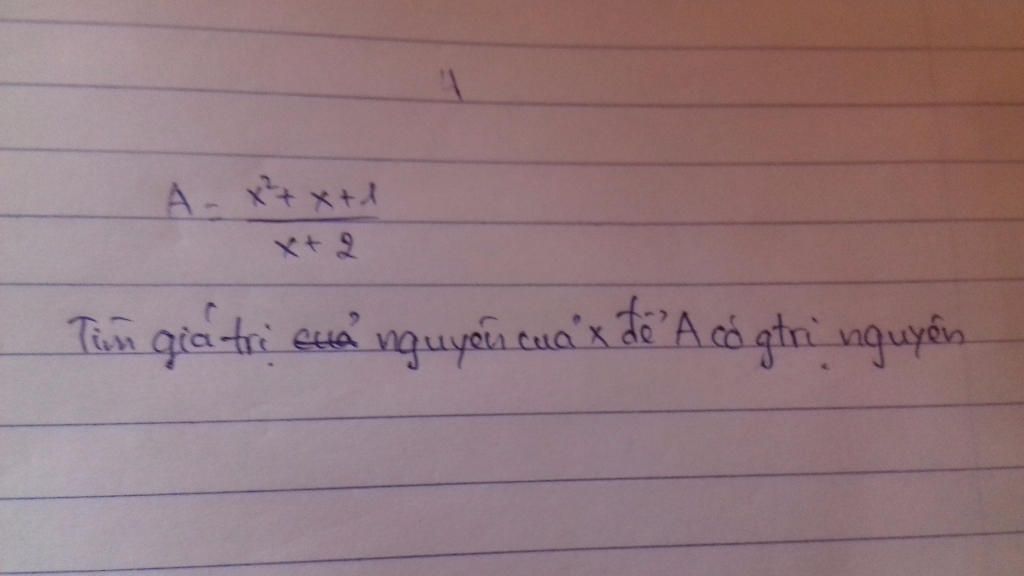 A = x² + x + 1
x + 2
Tìm giá trị của nguyên của x để A có gtrị nguyên